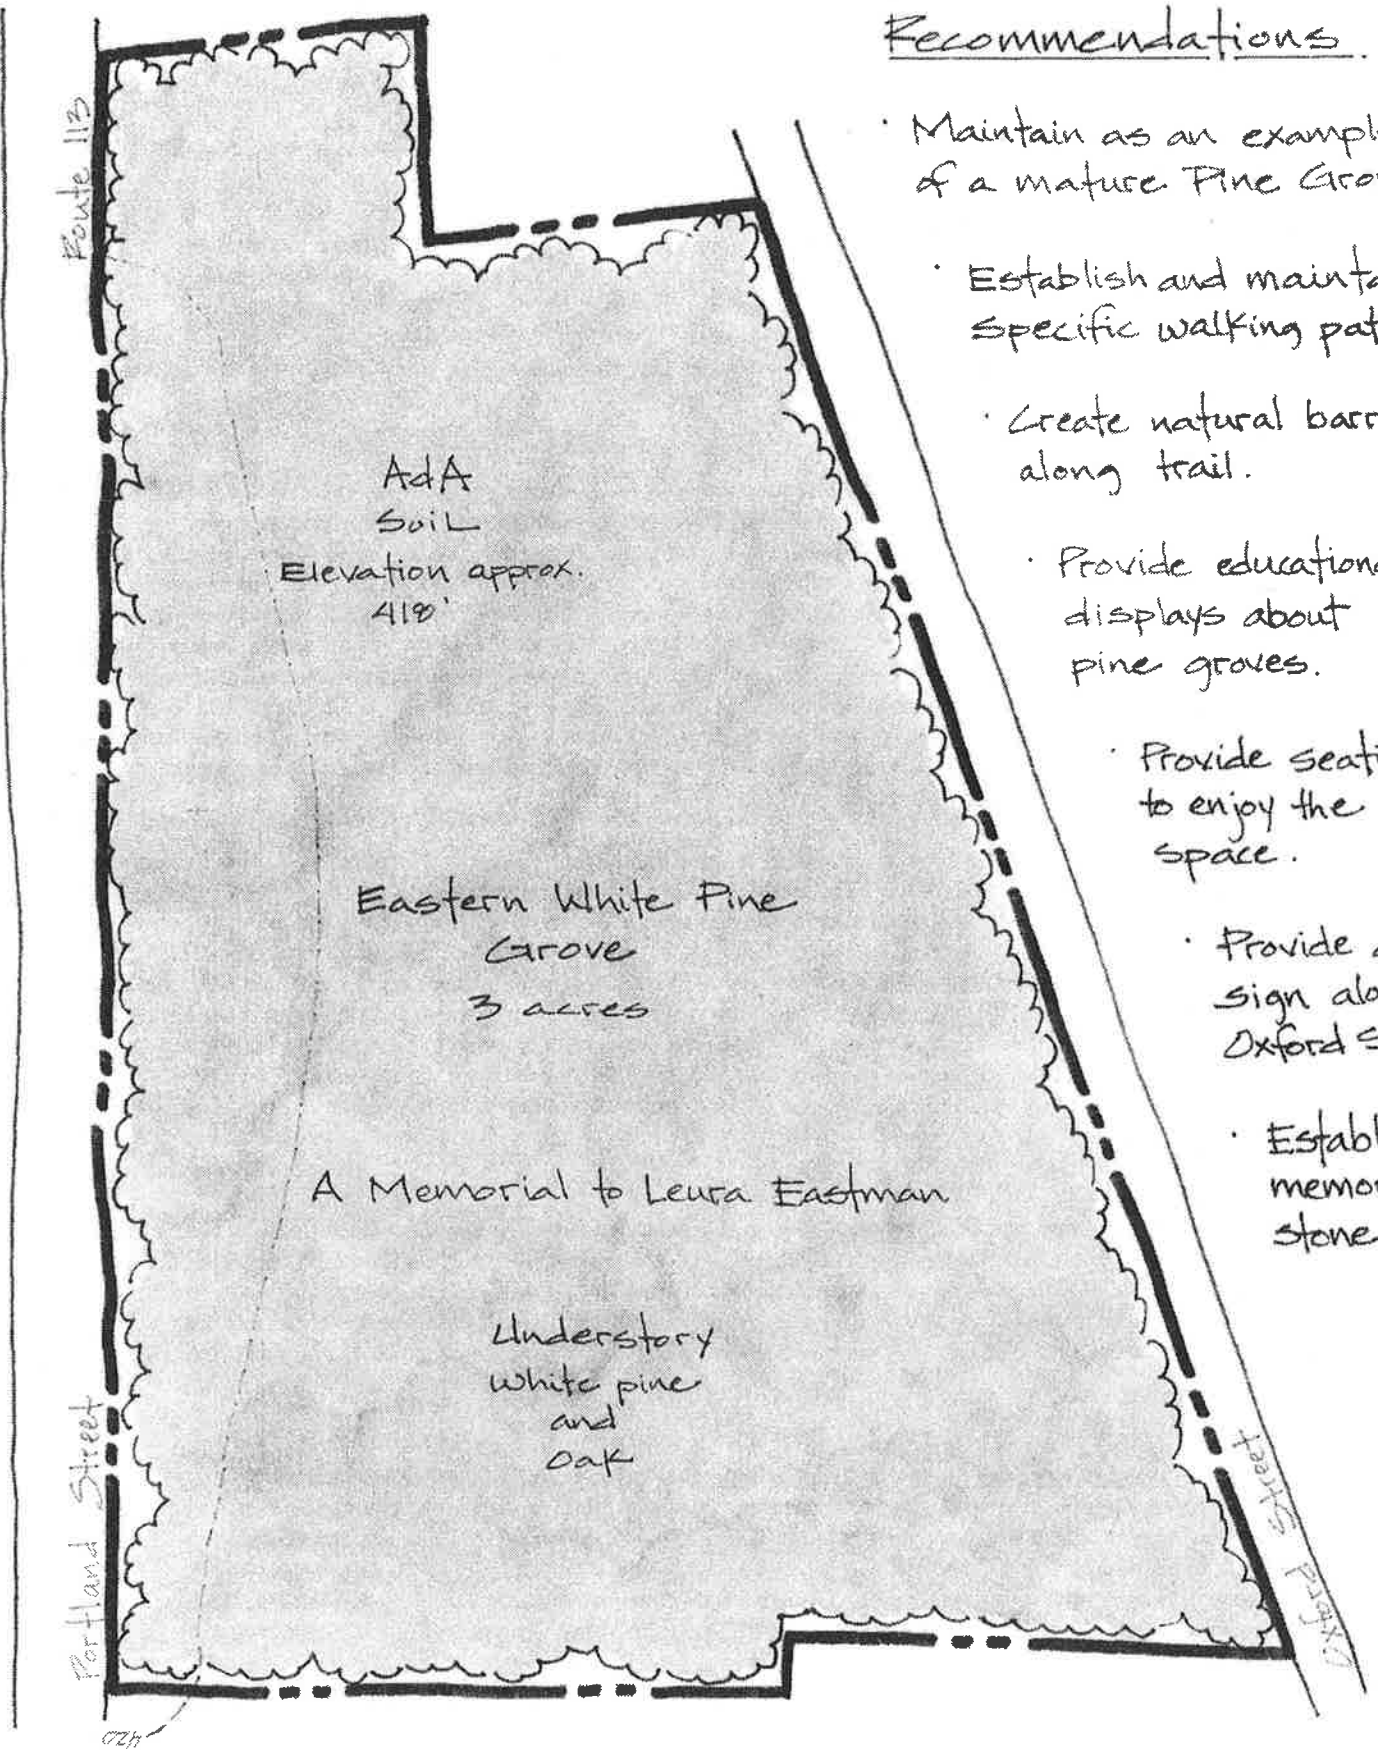 Recommendations
· Maintain as an example
of a mature Pine Gro
· Establish and mainta
specific walking pat
· Create natural barr
along trail.
· Provide educationa
displays about
pine groves.
· Provide seati
to enjoy the
space.
· Provide a
sign alo
Oxford S
· Establ
memor
stone
Route 113
AdA
Soil
Elevation approx.
418'
Eastern White Pine
Grove
3 acres
A Memorial to Leura Eastman
Understory
White pine
and
Oak
Portland Street
Oxford Street
420